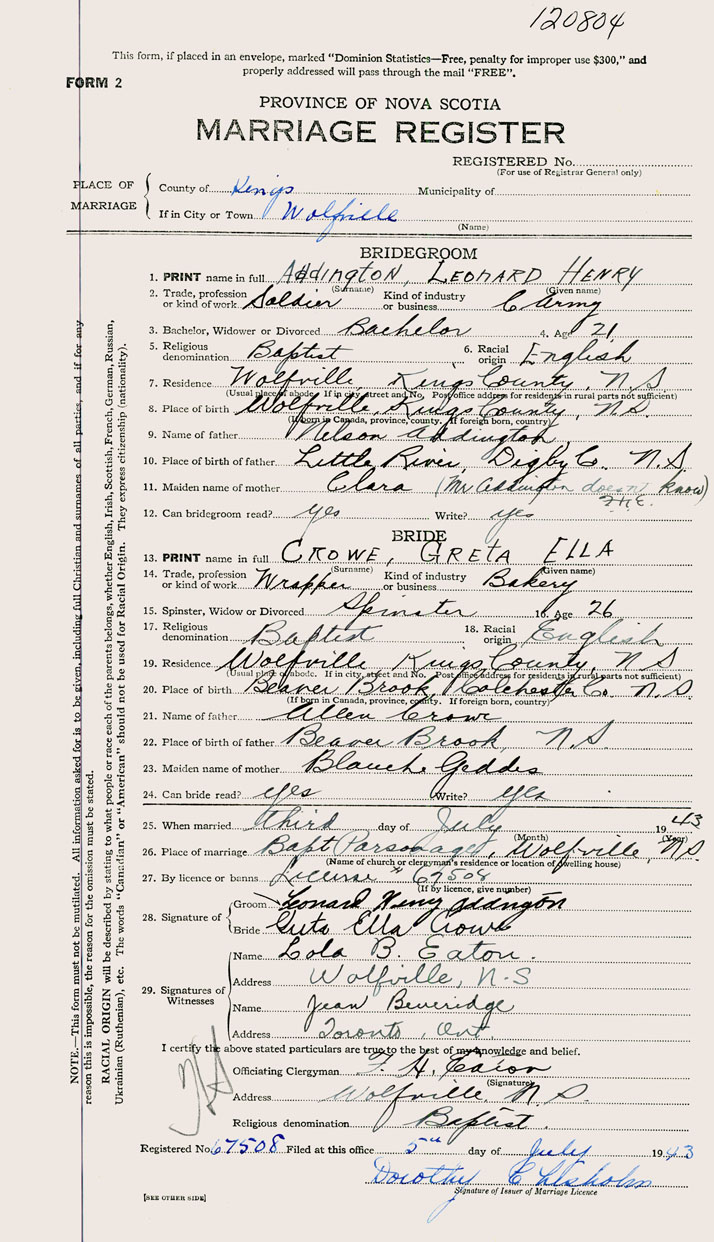 120804
This form, if placed in an envelope, marked "Dominion Statistics—Free, penalty for improper use $300," and
properly addressed will pass through the mail "FREE".
FORM 2
PROVINCE OF NOVA SCOTIA
MARRIAGE REGISTER
REGISTERED No.
(For use of Registrar General only)
PLACE OF MARRIAGE
County of Kings Municipality of
If in City or Town Wolfville
(Name)
BRIDEGROOM
1. PRINT name in full ADDINGTON, LEONARD HENRY
(Surname) (Given name)
2. Trade, profession or kind of work Soldier Kind of industry or business C Army
3. Bachelor, Widower or Divorced Bachelor 4. Age 21
5. Religious denomination Baptist 6. Racial origin English
7. Residence Wolfville, Kings County, N.S.
(Usual place of abode. If in city, street and No. Post office address for residents in rural parts not sufficient)
8. Place of birth Wolfville, Kings County, N.S.
(If born in Canada, province, county. If foreign born, country)
9. Name of father Nelson Addington
10. Place of birth of father Little River, Digby Co. N.S.
11. Maiden name of mother Clara (Mr Addington doesn't know)
F.H.E.
12. Can bridegroom read? yes Write? yes
BRIDE
13. PRINT name in full CROWE, GRETA ELLA
(Surname) (Given name)
14. Trade, profession or kind of work Wrapper Kind of industry or business Bakery
15. Spinster, Widow or Divorced Spinster 16. Age 26
17. Religious denomination Baptist 18. Racial origin English
19. Residence Wolfville Kings County, N S
(Usual place of abode. If in city, street and No. Post office address for residents in rural parts not sufficient)
20. Place of birth Beaver Brook, Colchester Co. N.S.
(If born in Canada, province, county. If foreign born, country)
21. Name of father Allen Crowe
22. Place of birth of father Beaver Brook N.S
23. Maiden name of mother Blanche Geddes
24. Can bride read? yes Write? yes
25. When married third day of July 1943
(Month) (Year)
26. Place of marriage Bapt Parsonage, Wolfville, N S
(Name of church or clergyman's residence or location of dwelling house)
27. By licence or banns License # 67508
(If by licence, give number)
28. Signature of
Groom Leonard Henry Addington
Bride Greta Ella Crowe
29. Signatures of Witnesses
Name Lola B. Eaton.
Address Wolfville, N.S
Name Jean Beveridge
Address Toronto, Ont.
I certify the above stated particulars are true to the best of my knowledge and belief.
Officiating Clergyman F. H. Eaton
(Signature)
Address Wolfville N.S.
Religious denomination Baptist.
Registered No. 67508 Filed at this office 5th day of July 1943
Dorothy Chisholm
Signature of Issuer of Marriage Licence
[SEE OTHER SIDE]
NOTE.—This form must not be mutilated. All information asked for is to be given, including full Christian and surnames of all parties, and if for any
reason this is impossible, the reason for the omission must be stated.
RACIAL ORIGIN will be described by stating to what people or race each of the parents belongs, whether English, Irish, Scottish, French, German, Russian,
Ukrainian (Ruthenian), etc. The words "Canadian" or "American" should not be used for Racial Origin. They express citizenship (nationality).